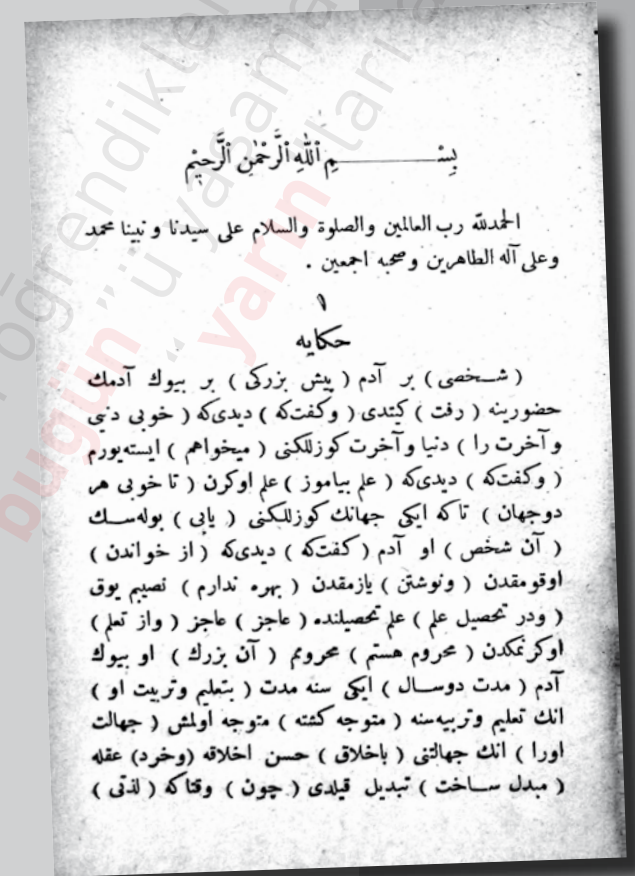 بِسْمِ ٱللّٰهِ ٱلرَّحْمٰنِ ٱلرَّحِيْمِ
الحمدلله رب العالمين والصلوة والسلام على سيدنا و نبينا محمد
وعلى آله الطاهرين وصحبه اجمعين .
١
حكايه
( شخصى ) بر آدم ( پيش بزركى ) بر بيوك آدمك
حضورينه ( رفت ) كتدى ( وكفت‌كه ) ديدى‌كه ( خوبى دنيى
و آخرت را ) دنيا و آخرت كوزللكنى ( ميخواهم ) ايسته‌يورم
( وكفت‌كه ) ديدى‌كه ( علم بياموز ) علم اوكرن ( تا خوبى هر
دوجهان ) تاكه ايكى جهانك كوزللكنى ( يابى ) بوله‌سك
( آن شخص ) او آدم ( كفت‌كه ) ديدى‌كه ( از خواندن )
اوقومقدن ( ونوشتن ) يازمقدن ( بهره ندارم ) نصيبم يوق
( ودر تحصيل علم ) علم تحصيلنده ( عاجز ) عاجز ( واز تعلم )
اوكرنمكدن ( محروم هستم ) محرومم ( آن بزرك ) او بيوك
آدم ( مدت دوسال ) ايكى سنه مدت ( بتعليم وتربيت او )
انك تعليم وتربيه‌سنه ( متوجه كشته ) متوجه اولمش ( جهالت
اورا ) انك جهالتنى ( باخلاق ) حسن اخلاقه (وخرد) عقله
( مبدل ساخت ) تبديل قيلدى ( چون ) وقتاكه ( لذتى )
öğrendikler
"ü yaşama
bugün
"yarın
ları